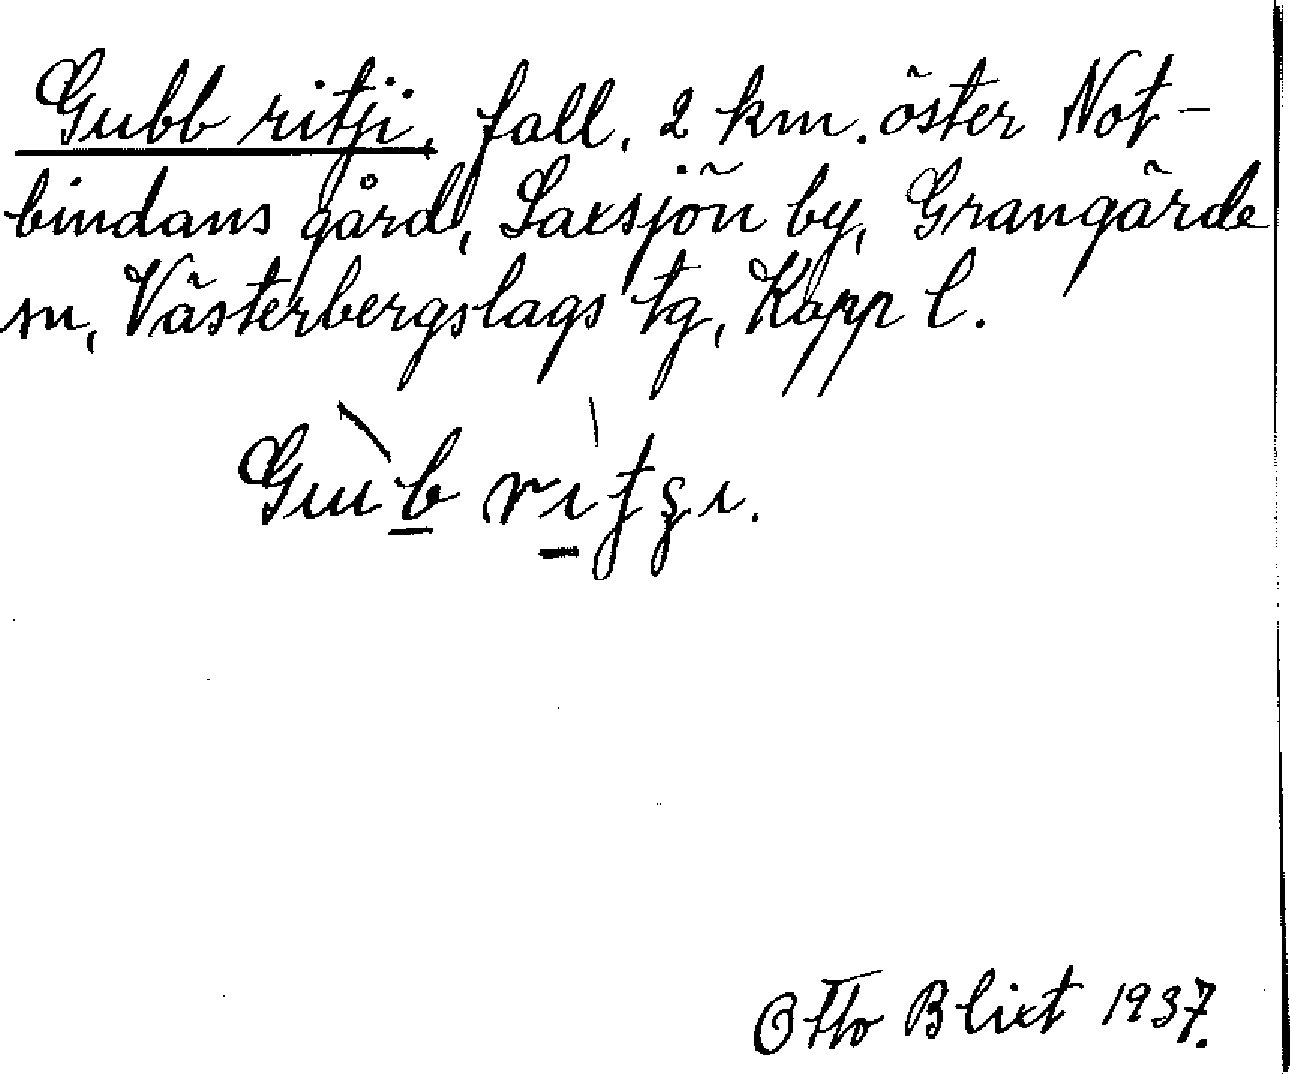 Gubb ritji, fall, 2 km. öster Not-
bindans gård, Saxsjön by, Grangärde
sn, Västerbergslags tg, Kopp l.
Gub ritʒı.
Otto Blixt 1937.